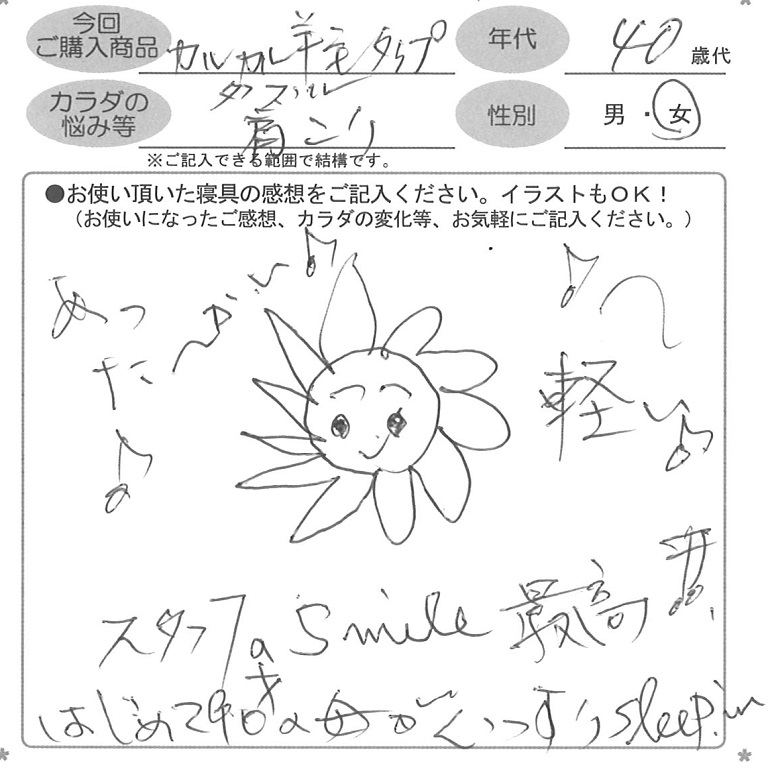 今回
ご購入商品
カルカル羊毛タップ
ダブル
年代
40歳代
カラダの
悩み等
肩こり
性別
男・女
※ご記入できる範囲で結構です。
●お使い頂いた寝具の感想をご記入ください。イラストもOK！
（お使いになったご感想、カラダの変化等、お気軽にご記入ください。）
あったか〜い♪
♪〜
軽い♪
♪
スタッフのSmile最高!!
はじめて90才の母がぐっすりsleep.in